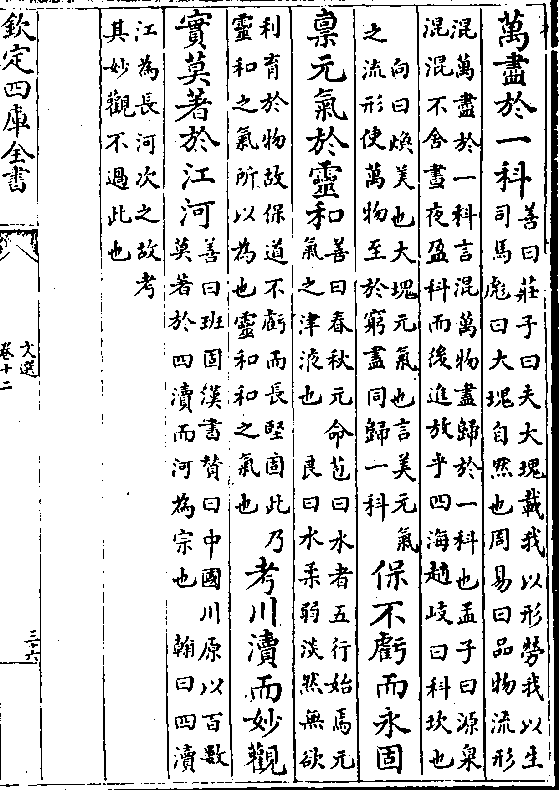 萬盡於一科善曰莊子曰夫大塊載我以形勞我以生
司馬彪曰大塊自然也周易曰品物流形
混萬盡於一科言混萬物盡歸於一科也孟子曰源泉
混混不舍晝夜盈科而後進放乎四海趙岐曰科坎也
向曰煥美也大塊元氣也言美元氣
之流形使萬物至於窮盡同歸一科
保不虧而永固
稟元氣於靈和善曰春秋元命苞曰水者五行始焉元
氣之津液也 良曰水柔弱淡然無欲
利育於物故保道不虧而長堅固此乃
靈和之氣所以為也靈和和之氣也
考川瀆而妙觀
實莫著於江河善曰班固漢書贊曰中國川原以百數
莫著於四瀆而河為宗也 翰曰四瀆
江為長河次之故考
其妙觀不過此也
欽定四庫全書
文選
卷十二
三十六